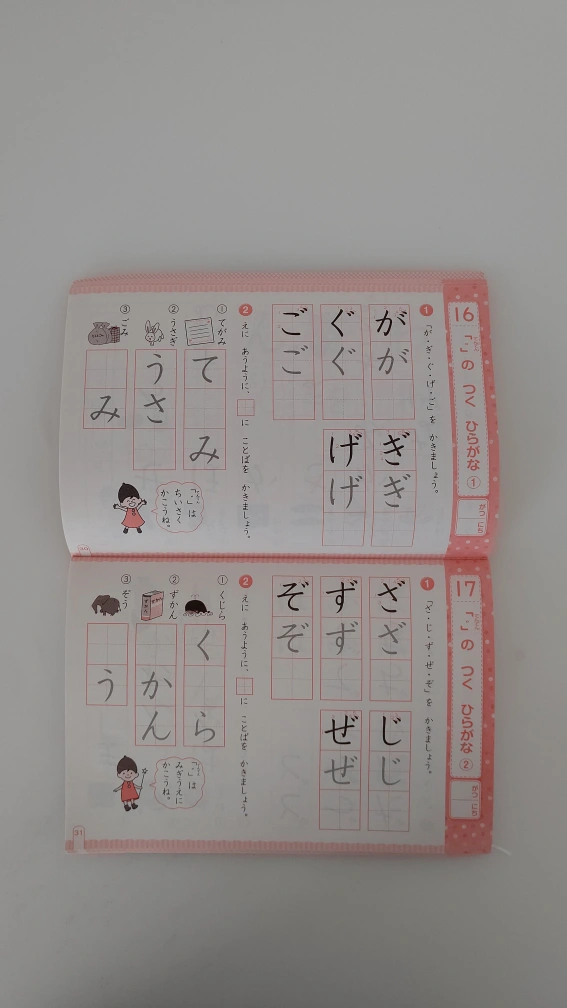 16
「゛」の つく ひらがな①
がつ にち
❶ 「が・ぎ・ぐ・げ・ご」を かきましょう。
が が
ぎ ぎ
ぐ ぐ
げ げ
ご ご
❷ えに あうように、□に ことばを かきましょう。
① てがみ
て み
② うさぎ
うさ
③ ごみ
み
「゛」は
ちいさく
かこうね。
17
「゛」の つく ひらがな②
がつ にち
❶ 「ざ・じ・ず・ぜ・ぞ」を かきましょう。
ざ ざ
じ じ
ず ず
ぜ ぜ
ぞ ぞ
❷ えに あうように、□に ことばを かきましょう。
① くじら
く ら
② ずかん
かん
③ ぞう
う
「゛」は
みぎうえに
かこうね。
31